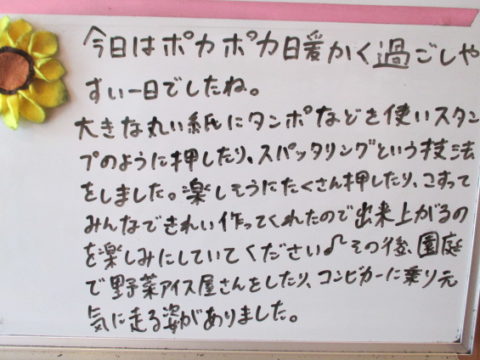 今日はポカポカ暖かく過ごしや
すい一日でしたね。
大きな丸い紙にタンポなどを使いスタン
プのように押したり、スパッタリングという技法
をしました。楽しそうにたくさん押したり、こすって
みんなできれい作ってくれたので出来上がるの
を楽しみにしていてください♪その後、園庭
で野菜アイス屋さんをしたり、コンビカーに乗り元
気に走る姿がありました。